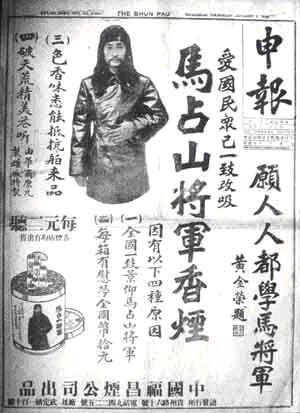 THE SHUN PAO
申報
願人人都學馬將軍
黃金榮題
愛國民眾已一致改吸
馬占山將軍香煙
因有以下四種原因
(一)全國一致景仰馬占山將軍
(二)每箱有慰勞金國幣拾元
(三)色香味悉能抵抗舶來品
(四)破天荒精美芯听
每元二聽
各煙店均有出售
中國福昌煙公司出品